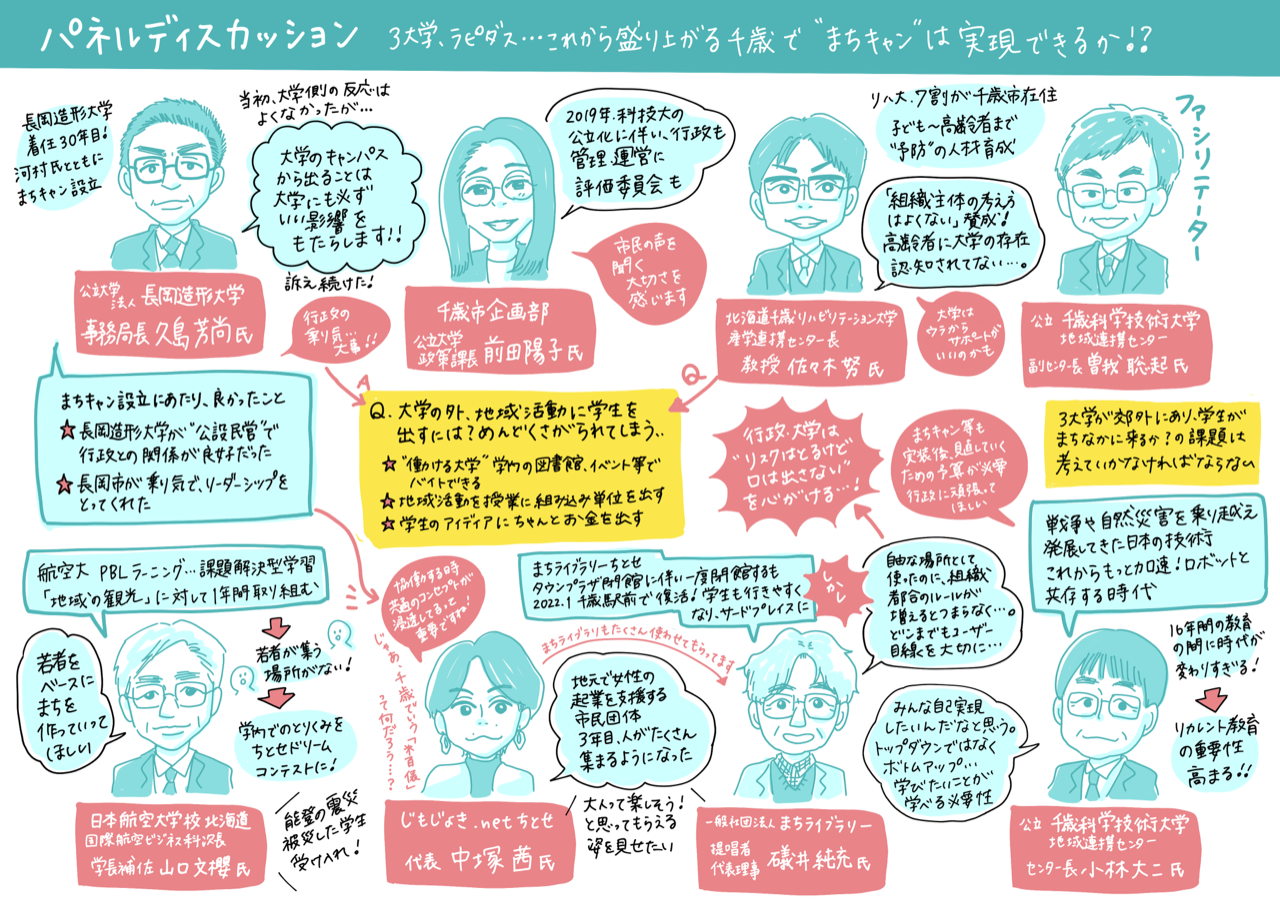 パネルディスカッション 3大学、ラピダス…これから盛り上がる千歳で"まちキャン"は実現できるか!?
長岡造形大学
着任30年目!
河村氏とともに
まちキャン設立
当初、大学側の反応は
よくなかったが…
大学のキャンパス
から出ることは
大学にも必ず
いい影響を
もたらします!!
訴え続けた!
公立大学
法人 長岡造形大学
事務局長 久島芳尚氏
行政の
乗り気…
大事!!
2019年.科技大の
公立化に伴い、行政も
管理.運営に
評価委員会も
市民の声を
聞く
大切さを
感じます
千歳市企画部
公立大学
政策課長 前田陽子氏
リハ大.7割が千歳市在住
子ども〜高齢者まで
"予防"の人材育成
「組織主体の考え方
はよくない」賛成!
高齢者に大学の存在
認知されてない…。
北海道千歳リハビリテーション大学
産学連携センター長
教授 佐々木努氏
大学は
ウラから
サポートが
いいのかも
ファシリテーター
公立 千歳科学技術大学
地域連携センター
副センター長 曽我聡起氏
まちキャン設立にあたり、良かったこと
★長岡造形大学が"公設民営"で
行政との関係が良好だった
★長岡市が乗り気で、リーダーシップを
とってくれた
A
Q
Q.大学の外、地域活動に学生を
出すには?めんどくさがられてしまう..
★"働ける大学"学内の図書館、イベント等で
バイトできる
★地域活動を授業に組み込み単位を出す
★学生のアイディアにちゃんとお金を出す
行政・大学は
"リスクはとるけど
口は出さない"
を心がける…!
まちキャン等も
実装後、見直していく
ための予算が必要
行政に頑張って
ほしい
3大学が郊外にあり、学生が
まちなかに来るか?の課題は
考えていかなければならない
戦争や自然災害を乗り越え
発展してきた日本の技術
これからもっと加速!ロボットと
共存する時代
航空大 PBLラーニング…課題解決型学習
「地域の観光」に対して1年間取り組む
若者が集う
場所がない!
学内でのとりくみを
ちとせドリーム
コンテストに!
若者を
ベースに
まちを
作っていって
ほしい
日本航空大学校 北海道
国際航空ビジネス科次長
学長補佐 山口文櫻氏
能登の震災
被災した学生
受け入れ!
協働する時
共通のコンセプトが
浸透してるって
重要ですね!
じゃあ、千歳でいう「米百俵」
って何だろう…?
まちライブラリーちとせ
タウンプラザ閉館に伴い一度閉館するも
2022.1 千歳駅前で復活!学生も行きやすく
なり、サードプレイスに
しかし
自由な場所として
使ったのに、組織
都合のルールが
増えるとつまらなく…。
どこまでもユーザー
目線を大切に…
まちライブラリもたくさん使わせてもらってます
地元で女性の
起業を支援する
市民団体
3年目、人がたくさん
集まるようになった
大人って楽しそう!
と思ってもらえる
姿を見せたい
じもじょき.netちとせ
代表 中塚茜氏
みんな自己実現
したいんだなと思う。
トップダウンではなく
ボトムアップ…
学びたいことが
学べる必要性
一般社団法人 まちライブラリー
提唱者
代表理事 礒井純充氏
16年間の教育
の間に時代が
変わりすぎる!
リカレント教育
の重要性
高まる!!
公立 千歳科学技術大学
地域連携センター
センター長 小林大二氏